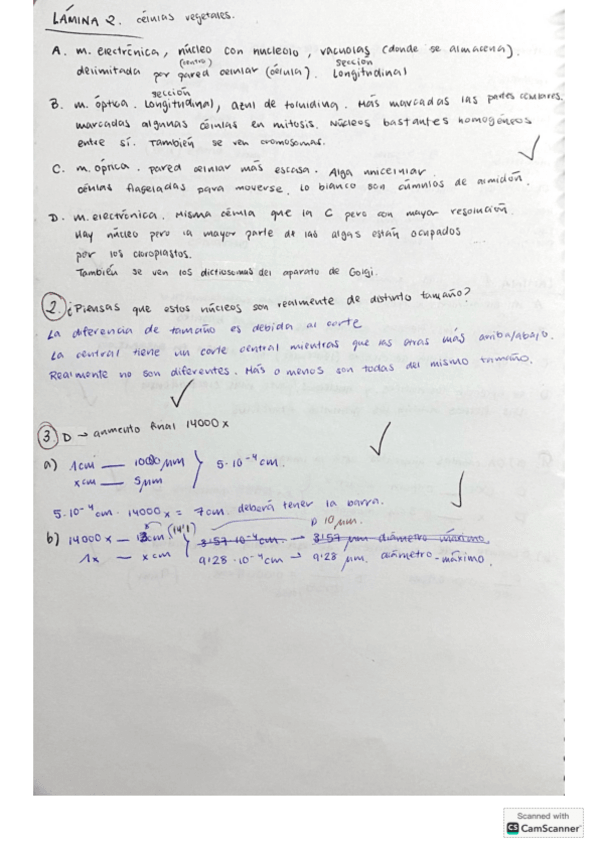 LÁMINA 2. células vegetales.
A. m. electrónica, núcleo con nucleolo, vacuolas (donde se almacena).
(centro) sección
delimitada por pared celular (célula). Longitudinal
sección
B. m. óptica. Longitudinal, azul de toluidina. Más marcadas las partes celulares.
marcadas algunas células en mitosis. Núcleos bastantes homogéneos
entre sí. También se ven cromosomas.
C. m. óptica. pared celular más escasa. Alga unicelular.
células flageladas para moverse. Lo blanco son cúmulos de almidón.
D. m. electrónica. Misma célula que la C pero con mayor resolución
Hay núcleo pero la mayor parte de las algas están ocupados
por los cloroplastos.
También se ven los dictiosomas del aparato de Golgi.
2. ¿Piensas que estos núcleos son realmente de distinto tamaño?
La diferencia de tamaño es debida al corte
La central tiene un corte central mientras que las otras más arriba/abajo.
Realmente no son diferentes. Más o menos son todas del mismo tamaño.
3. D → aumento final 14000 x
a) 1cm — 10000 μm } 5·10⁻⁴ cm.
x cm — 5μm
5·10⁻⁴ cm · 14000 x = 7cm deberá tener la barra.
(14'1) 10 μm.
b) 14000 x — 13cm } 8'57·10⁻⁴ cm → 8'57 μm diámetro máximo.
1x — x cm 9'28·10⁻⁴ cm → 9'28 μm. diámetro máximo.
Scanned with
CS CamScanner